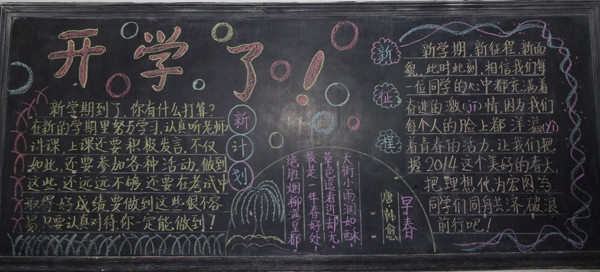 开学了！
新学期到了,你有什么打算?
在新的学期里努力学习,认真听老师
讲课,上课还要积极发言,不仅
如此,还要参加各种活动,做到
这些还远远不够,还要在考试中
取得好成绩,要做到这些很不容
易,只要认真对待,你一定能做到!
新计划
早春
唐 韩愈
天街小雨润如酥
草色遥看近却无
最是一年春好处
绝胜烟柳满皇都
新征程
新学期,新征程,新面
貌,此时此刻,相信我们每
一位同学的心中都充满着
奋进的激(jī)情,因为我们
每个人的脸上都洋溢(yì)
着青春的活力,让我们把
握2014这个美好的春天,
把理想化为宏图,与
同学们同舟共济,破浪
前行吧!